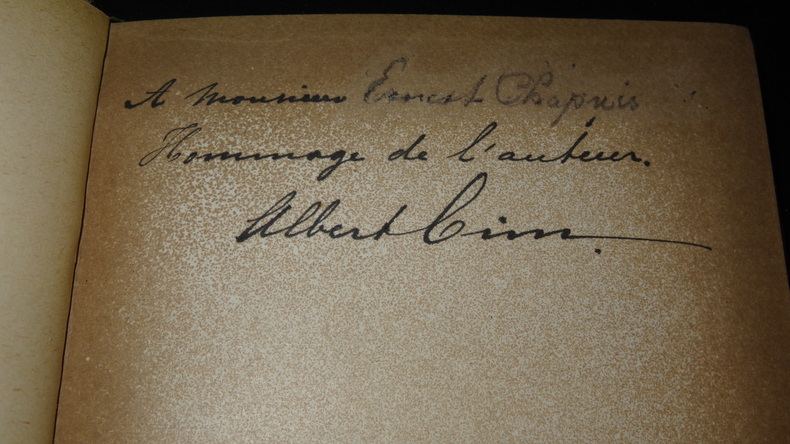 A Monsieur Ernest Chapuis
Hommage de l'auteur.
Albert Cim.